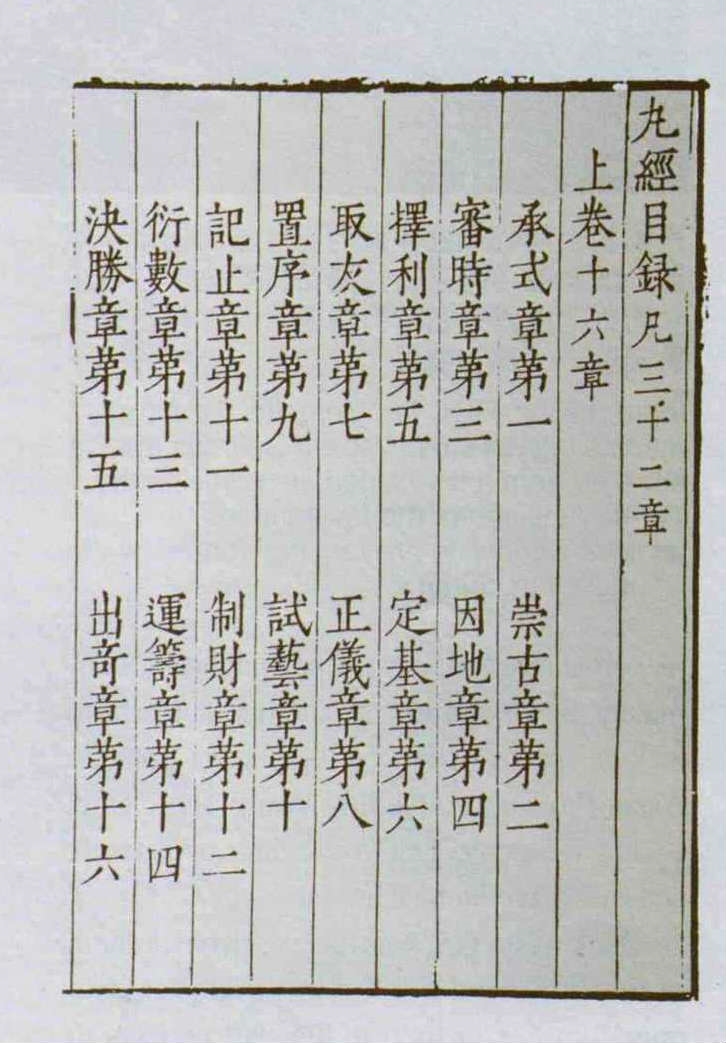 丸經目録凡三十二章
上卷十六章
承式章第一 崇古章第二
審時章第三 因地章第四
擇利章第五 定基章第六
取友章第七 正儀章第八
置序章第九 試藝章第十
記止章第十一 制財章第十二
衍數章第十三 運籌章第十四
決勝章第十五 出奇章第十六